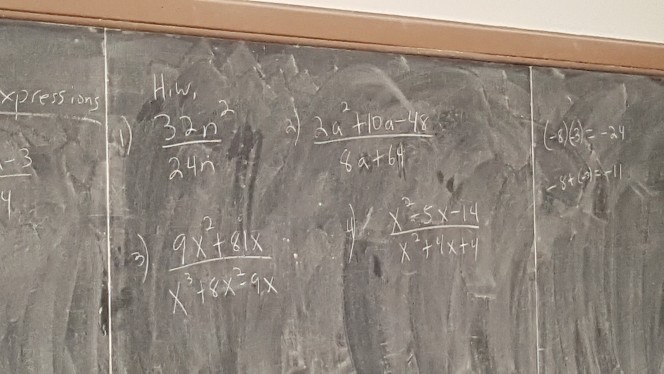 xpressions
-3
4
H.W.
1) 32n²
24n
2) 2a²+10a-48
8a+64
3) 9x²+81x
x³+8x²-9x
4) x²-5x-14
x²+4x+4
(-8)(3)=-24
-8+(-3)=-11